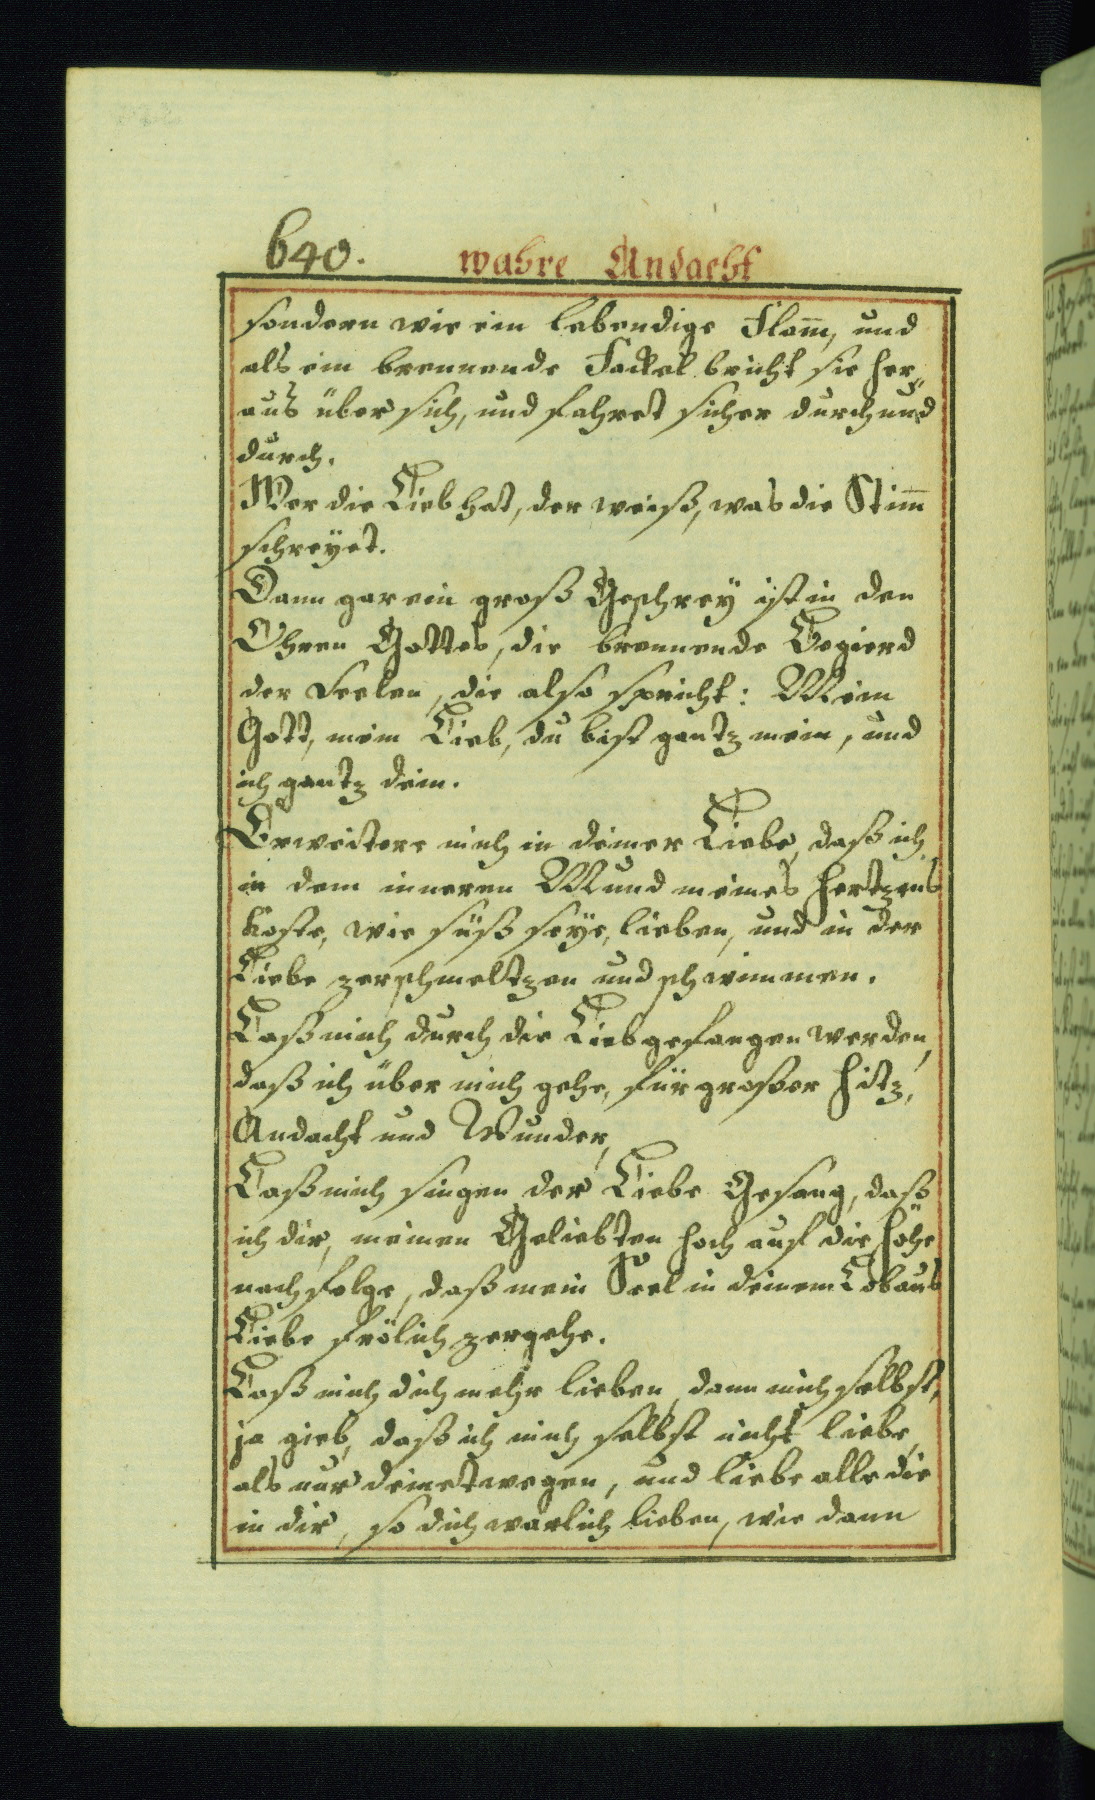 640. wahre Andacht
sondern wie ein lebendige Flam̅, und
als ein brennende Fackel bricht sie her„
aus über sich, und fahret sicher durch und
durch.
Wer die Lieb hat, der weiß, was die Stim̅
schreÿet.
Dann gar ein groß Geschreÿ ist in den
Ohren Gottes, die brennende Begierd
der Seelen, die also spricht: Mein
Gott, mein Lieb, du bist gantz mein, und
ich gantz dein.
Erweitere mich in deiner Liebe, daß ich
in dem inneren Mund meines Hertzens
koste, wie süß seÿe, lieben, und in der
Liebe zerschmeltzen und schwimmen.
Laß mich durch die Lieb gefangen werden,
daß ich über mich gehe, für großer Hitz,
Andacht und Wunder,
Laß mich singen der Liebe Gesang, daß
ich dir, meinen Geliebten hoch auf die Höhe
nachfolge, daß mein Seel in deinem Lob aus
Liebe frölich zergehe.
Laß mich dich mehr lieben, dann mich selbst,
ja gieb, daß ich mich selbst nicht liebe,
als nur deinetwegen, und liebe alle die
in dir, so dich warlich lieben, wie dann